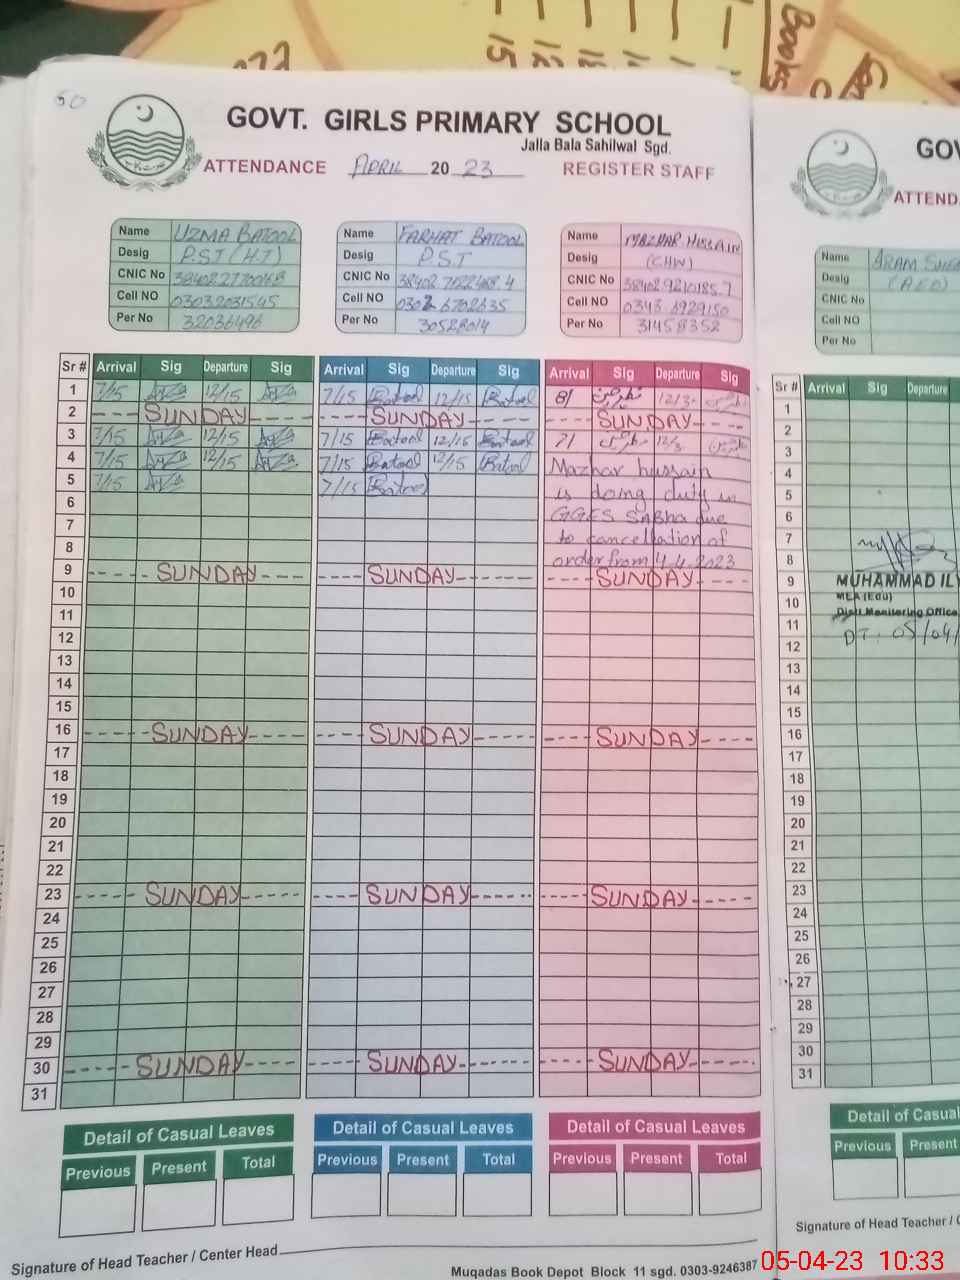 50
GOVT. GIRLS PRIMARY SCHOOL
Jalla Bala Sahilwal Sgd.
ATTENDANCE APRIL 20 23 REGISTER STAFF
Name UZMA BATOOL
Desig P.S.T (H.T)
CNIC No
Cell NO 03032031545
Per No 32036496
Name FARHAT BATOOL
Desig P.S.T
CNIC No
Cell NO 0302 6702635
Per No 30528014
Name MAZHAR HUSSAIN
Desig
CNIC No
Cell NO 0343 6929150
Per No 31458352
Sr # Arrival Sig Departure Sig Arrival Sig Departure Sig Arrival Sig Departure Sig
1 7/15 12/15 7/15 Batool 12/15 Batool 8/
2 SUNDAY SUNDAY SUNDAY
3 7/15 12/15 7/15 Batool 12/15 Batool 7/
4 7/15 12/15 7/15 Batool 12/15 Batool Mazhar hussain
5 7/15 7/15 Batool is doing duty in
6 GGES Sabha due
7 to cancellation of
8 order from 4.4.2023
9 SUNDAY SUNDAY SUNDAY
10
11
12
13
14
15
16 SUNDAY SUNDAY SUNDAY
17
18
19
20
21
22
23 SUNDAY SUNDAY SUNDAY
24
25
26
27
28
29
30 SUNDAY SUNDAY SUNDAY
31
Detail of Casual Leaves Detail of Casual Leaves Detail of Casual Leaves
Previous Present Total Previous Present Total Previous Present Total
Signature of Head Teacher / Center Head
Muqadas Book Depot Block 11 sgd. 0303-9246387
GO
ATTEND
Name
Desig (AEO)
CNIC No
Cell NO
Per No
Sr # Arrival Sig Departure
1
2
3
4
5
6
7
8
9 MUHAMMAD IL
MEA (Edu)
10 Distt Monitoring Office
11 DT: 05/04/
12
13
14
15
16
17
18
19
20
21
22
23
24
25
26
27
28
29
30
31
Detail of Casual
Previous Present
Signature of Head Teacher / C
Books
15
05-04-23 10:33